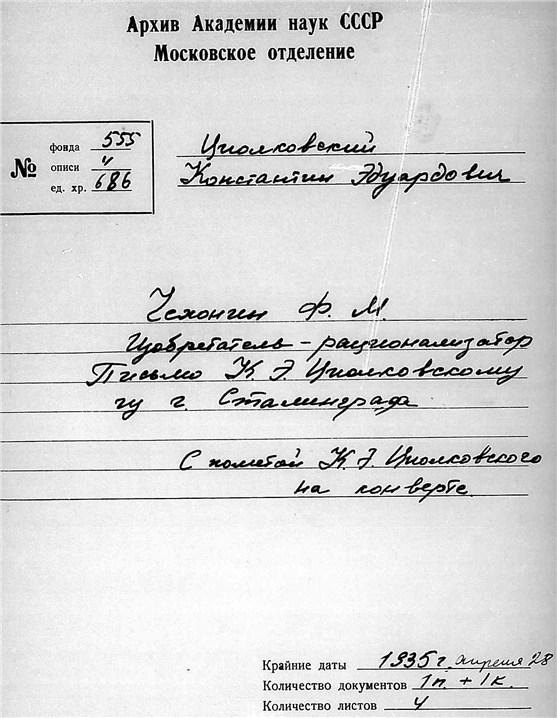 Архив Академии наук СССР
Московское отделение
№
фонда 555
описи 4
ед. хр. 686
Циолковский
Константин Эдуардович
Чехонин Ф. М.
Изобретатель-рационализатор
Письмо К. Э. Циолковскому
из г. Сталинграда
С пометой К. Э. Циолковского
на конверте.
Крайние даты 1935 г. апреля 28
Количество документов 1п. + 1к.
Количество листов 4